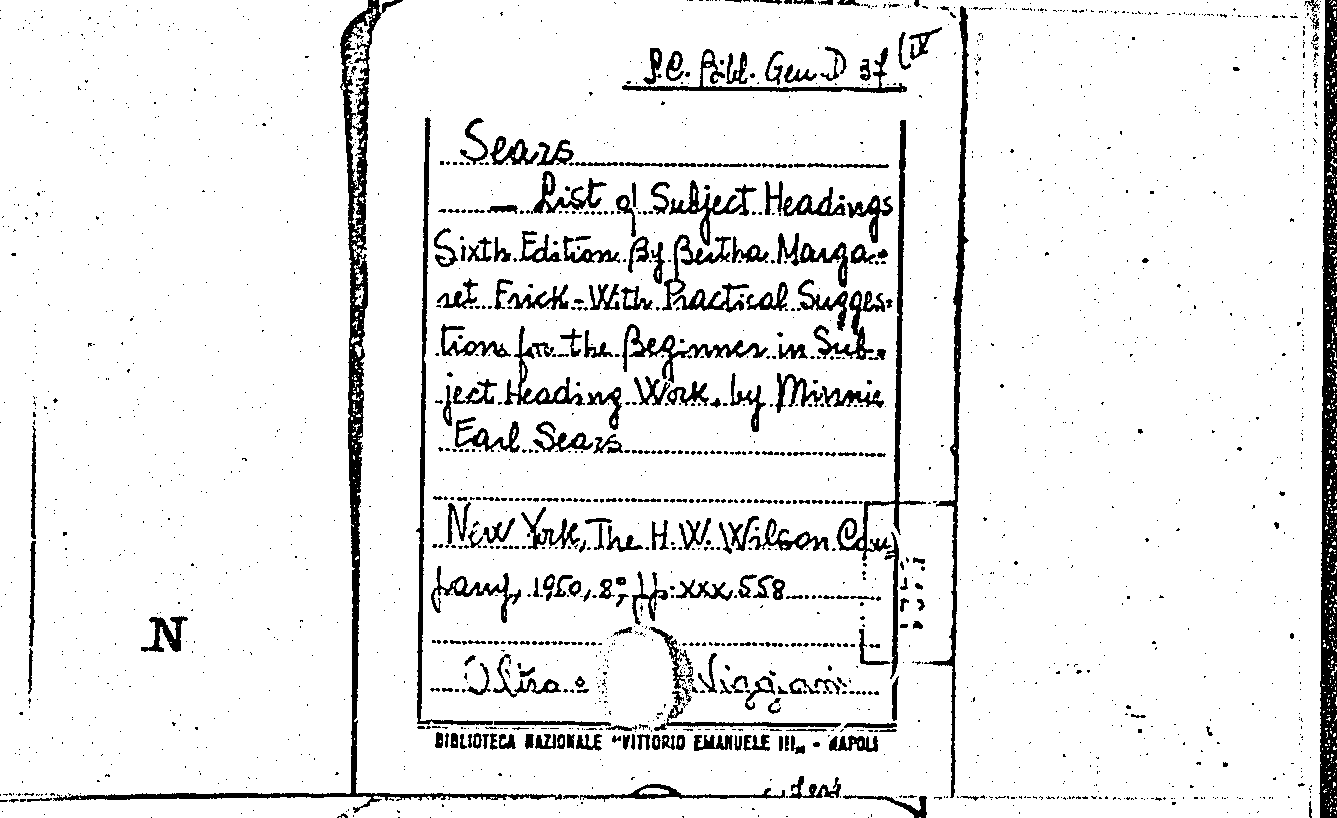 S.C. Bibl. Gen. D 37 (IV
Sears
— List of Subject Headings
Sixth Edition By Bertha Marga-
ret Frick-With Practical Sugges-
tions for the Beginner in Sub-
ject Heading Work, by Minnie
Earl Sears
New York, The H.W. Wilson Com
pany, 1950, 8°, pp. xxx, 558
N
Viggiani
BIBLIOTECA NAZIONALE "VITTORIO EMANUELE III„ - NAPOLI